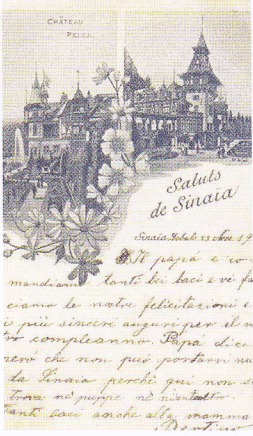 CHÂTEAU
PELES.
Saluts
de Sinaïa
Sinaia 13
Il papá e io
mandiamo tanti bei baci e vi fac
ciamo le nostre felicitazioni e
i più sinceri auguri per il v
ro compleanno. Papa dice
però che non può portarvi nul
la Sinaia perchè qui non si
trova nè puppe nè
Tanti baci anche alla mamma